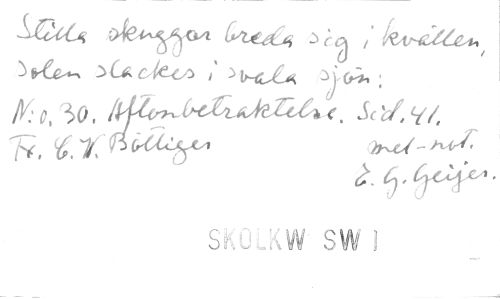 Stilla skuggor breda sig i kvällen,
solen släckes i svala sjön:
N:o. 30. Aftonbetraktelse. Sid. 41.
Tx. C. W. Böttiger mel-not.
E. G. Geijer.
SKOLKW SW 1